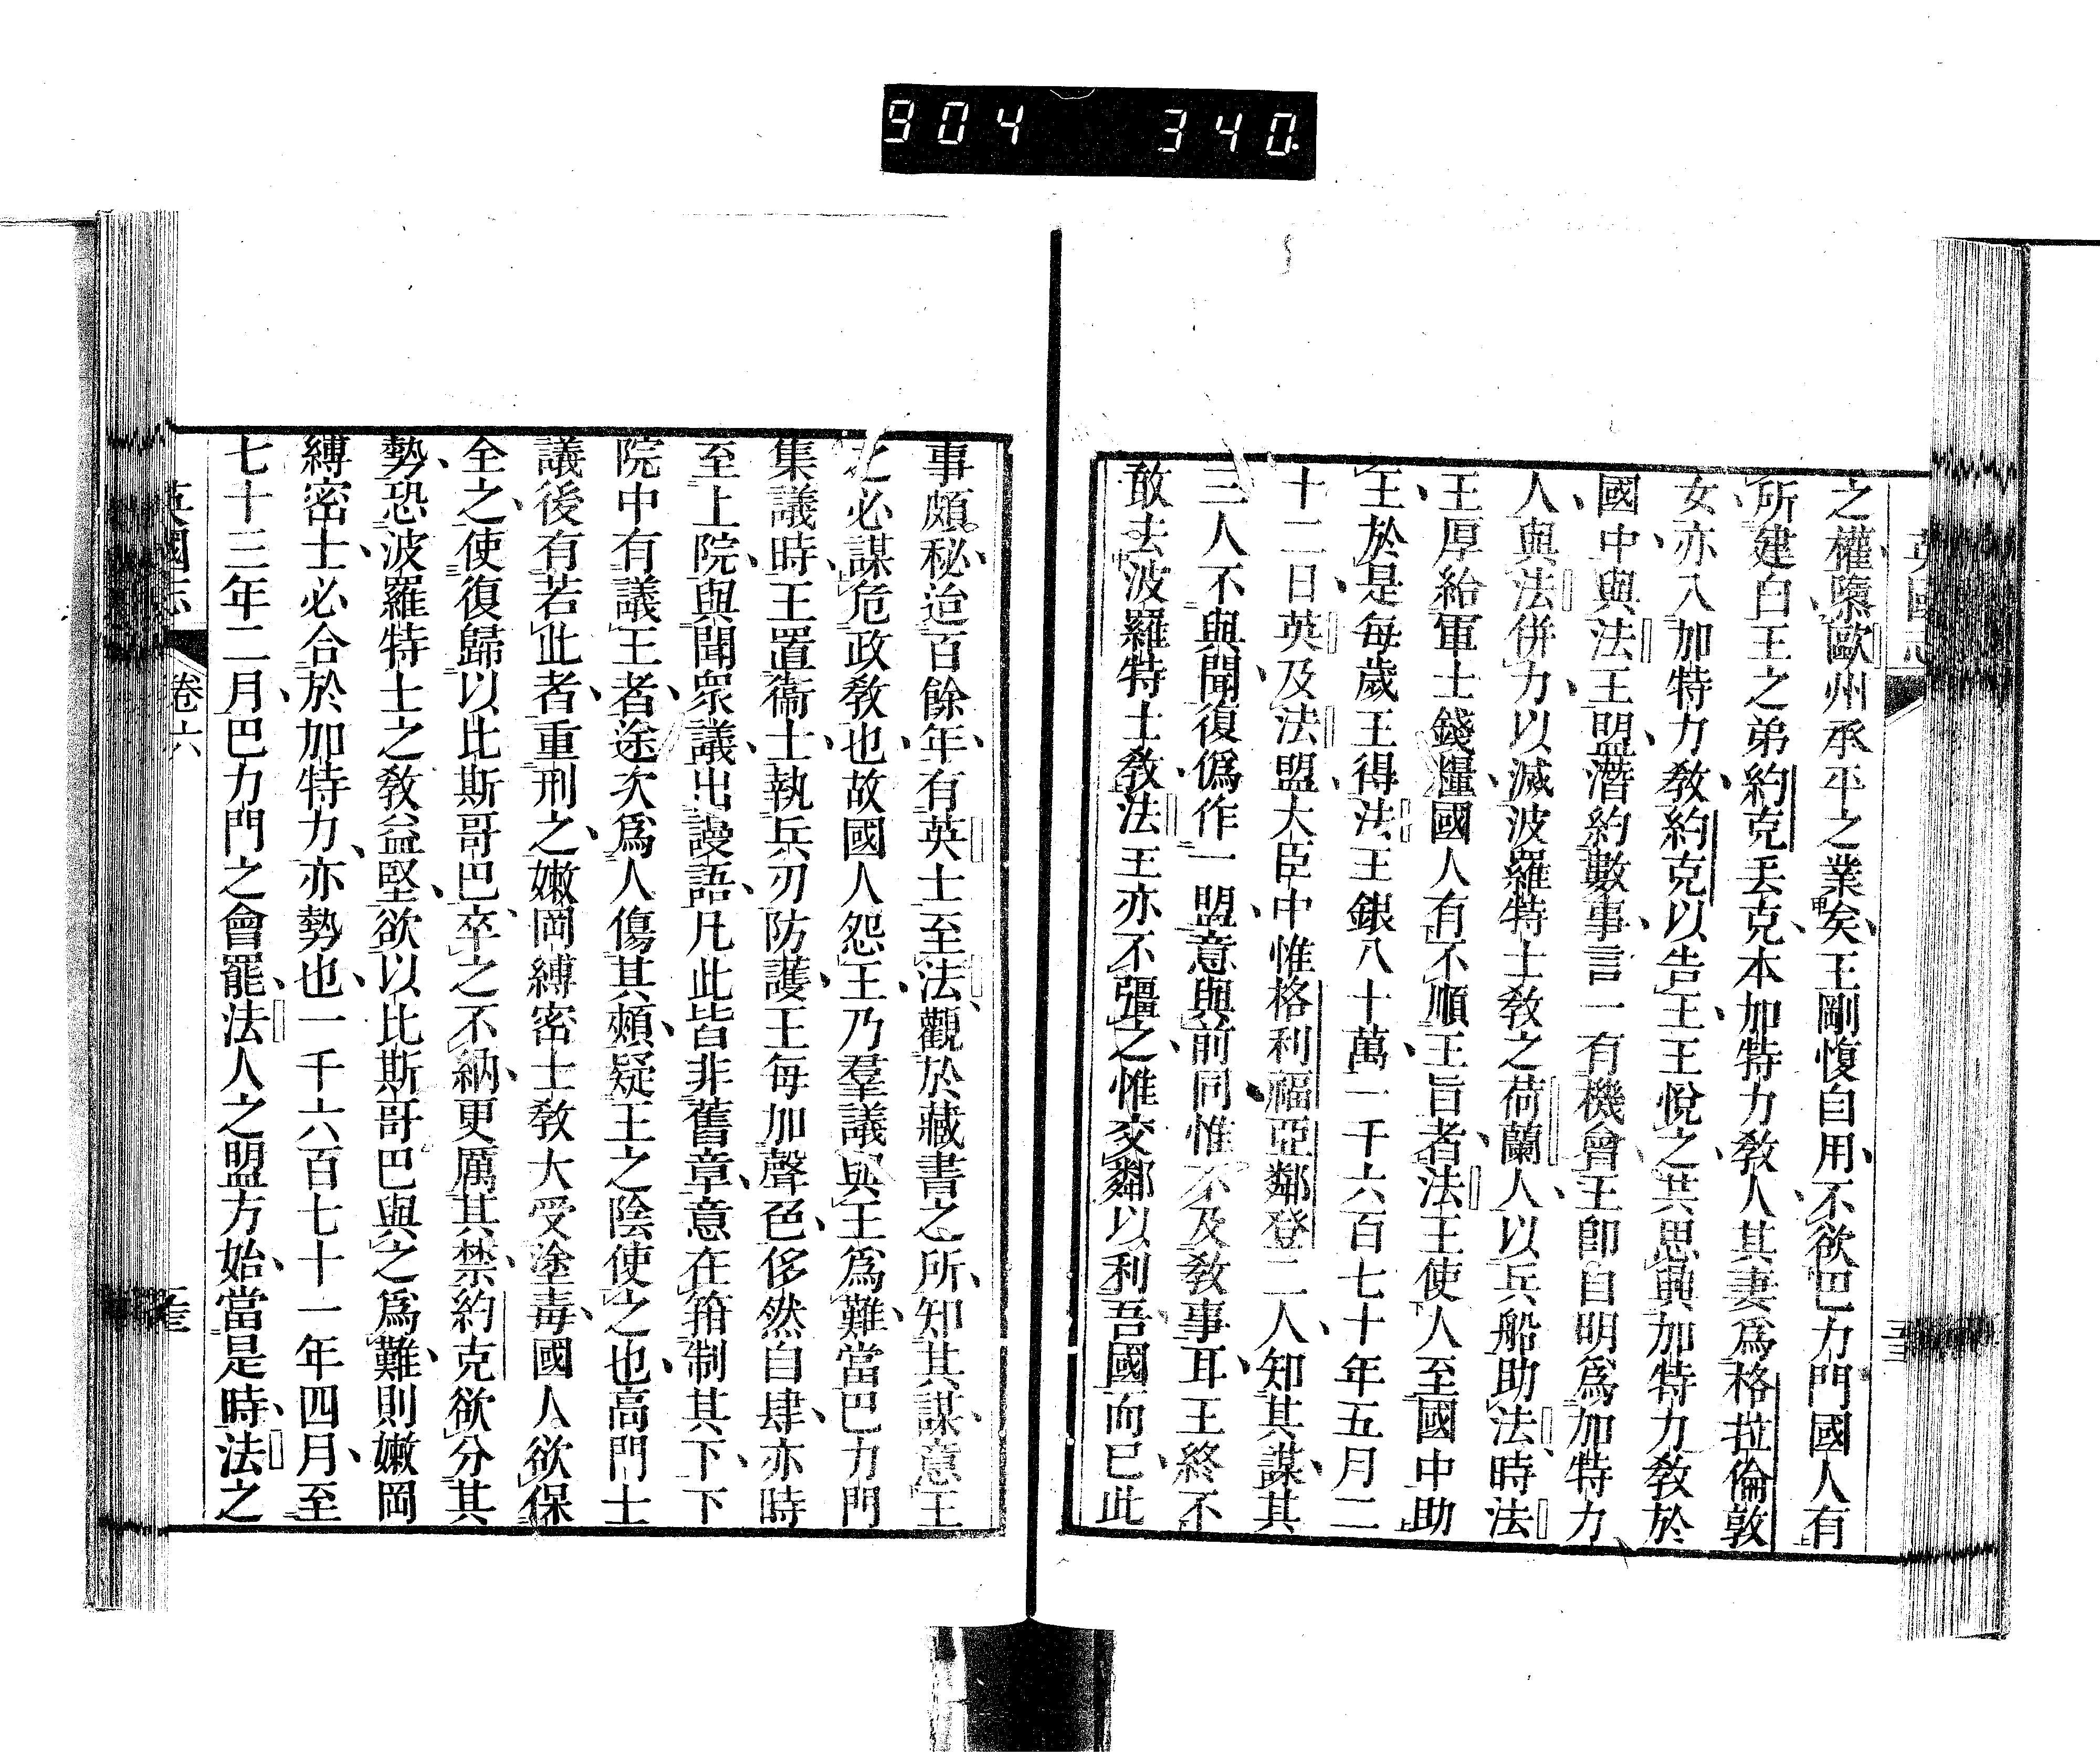 904 340
英國志
之權墮歐州承平之業矣王剛愎自用不欲巴力門國人有
所建白王之弟約克丢克本加特力教人其妻爲格拉倫敦
女亦入加特力教約克以告王王悅之共思興加特力教於
國中與法王盟潛約數事言一有機會王卽自明爲加特力
人與法併力以滅波羅特士教之荷蘭人以兵船助法時法
王厚給軍士錢糧國人有不順王旨者法王使人至國中助
王於是每歲王得法王銀八十萬一千六百七十年五月二
十二日英及法盟大臣中惟格利福亞鄰登二人知其謀其
三人不與聞復僞作一盟意與前同惟不及教事耳王終不
敢去波羅特士教法王亦不彊之惟交鄰以利吾國而已此
事頗秘迨百餘年有英士至法觀於藏書之所知其謀意王
之必謀危政教也故國人怨王乃羣議與王爲難當巴力門
集議時王置衞士執兵刃防護王每加聲色侈然自肆亦時
至上院與聞眾議出謾語凡此皆非舊章意在箝制其下下
院中有議王者途次爲人傷其頰疑王之陰使之也高門士
議後有若此者重刑之嫩岡縛密士教大受塗毒國人欲保
全之使復歸以比斯哥巴卒之不納更厲其禁約克欲分其
勢恐波羅特士之教益堅欲以比斯哥巴與之爲難則嫩岡
縛密士必合於加特力亦勢也一千六百七十一年四月至
七十三年二月巴力門之會罷法人之盟方始當是時法之
英國志
卷六